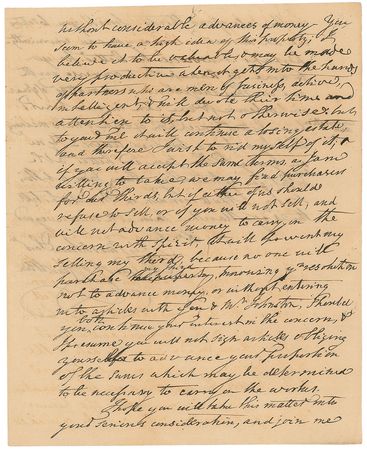 without considerable advances of money. You
seem to have a high idea of this property, I
believe it to be valuable, & may be made
very productive when it gets into the hands
of partners who are men of business, active,
intelligent, & will devote their time and
attention to it, but not otherwise; but
to you & me it will continue a losing estate,
and therefore I wish to rid myself of it, &
if you will accept the same terms, as I am
willing to take, we may find purchasers
for our thirds, but if either of us should
refuse to sell, or if you will not sell, and
will not advance money to carry on the
concern with spirit it will prevent my
selling my third, because no one will
purchase my third, knowing yr. resolution
not to advance money, or without entering
into articles with you & Mr. Johnston. Should
you both continue your interest in the concern, &
I presume you will not sign articles obliging
yourself to advance your proportion
of the sums which may be determined
to be necessary to carry on the works.
I hope you will take this matter into
your serious consideration, and join me